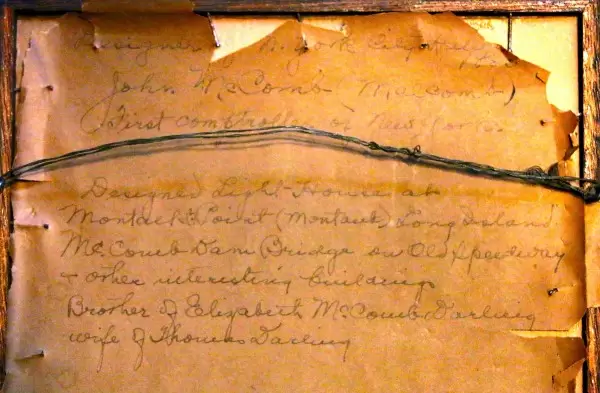 Designer of N. York City Hall
John McComb (Malcomb)
(First comptroller of New York.
Designed Light House at
Montack Point (Montauk) Long Island
Mc.Comb Dam Bridge on Old Speedway
+ other interesting buildings
Brother of Elizabeth McComb Darling
wife of Thomas Darling